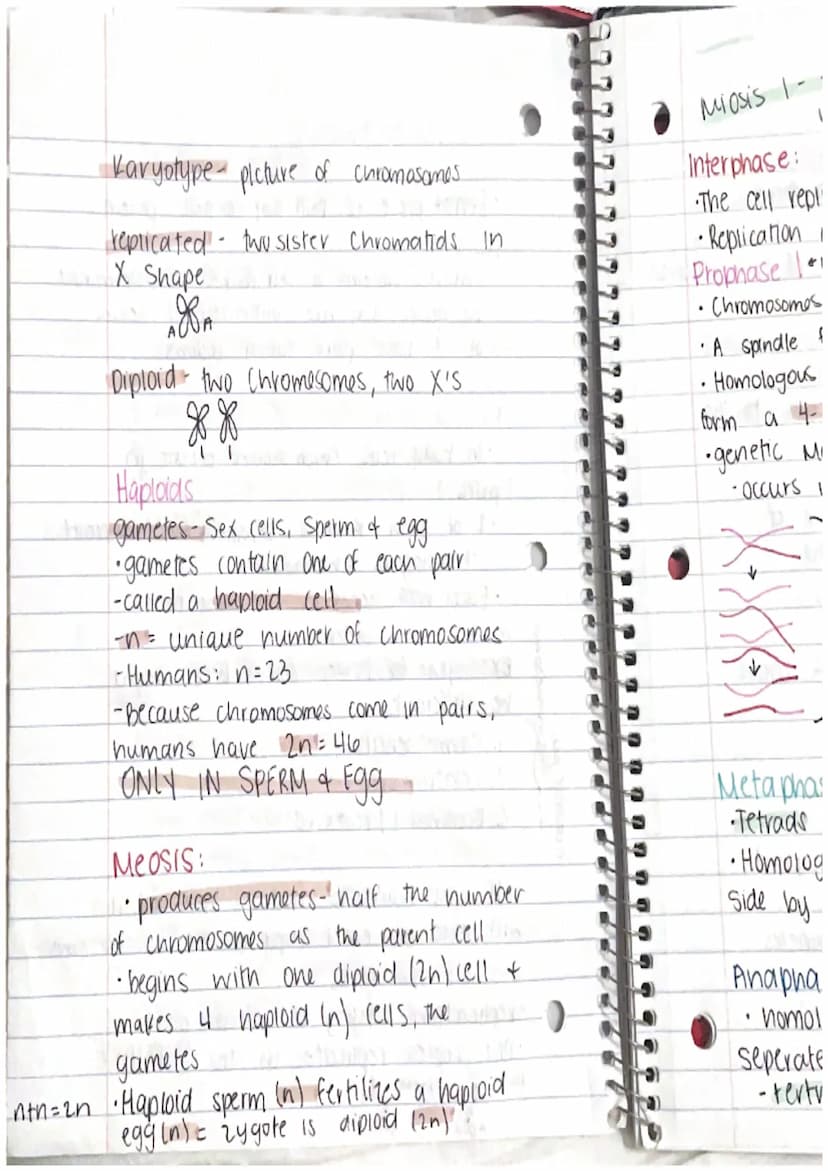 Karyotype- picture of chromasomes
replicated - two sister Chromatids in
X Shape
A A
Diploid- two Chromosomes, two X's
Haploids
gametes- Sex cells, Sperm & egg
•gametes contain one of each pair
-called a haploid cell
-n = unique number of chromosomes
-Humans: n=23
-Because chromosomes come in pairs,
humans have 2n = 46
ONLY IN SPERM & Egg
Meosis:
• produces gametes- half the number
of chromosomes as the parent cell
•begins with one diploid (2n) cell +
makes 4 haploid (n) cells, the
gametes
n+n=2n •Haploid sperm (n) fertilizes a haploid
egg (n) = zygote is diploid (2n)
Miosis 1 -
Interphase:
•The cell repl
•Replication
Prophase 1
• Chromosomes
• A spindle f
• Homologous
form a 4-
•genetic M
-occurs
Metapha
•Tetrads
•Homolog
Side by
Anapha
• homol
seperate